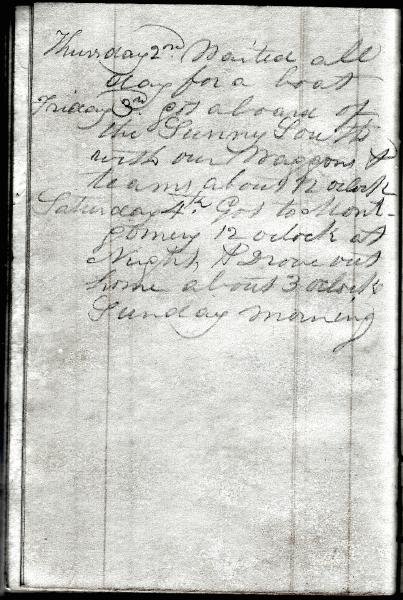 Thursday 2nd Waited all
day for a boat
Friday 3rd got aboard of
the Sunny South
with our Waggons &
teams about 12 oclock
Saturday 4th Got to Mont-
gomery 12 oclock at
Night & Drove out
home about 3 oclock
Sunday morning